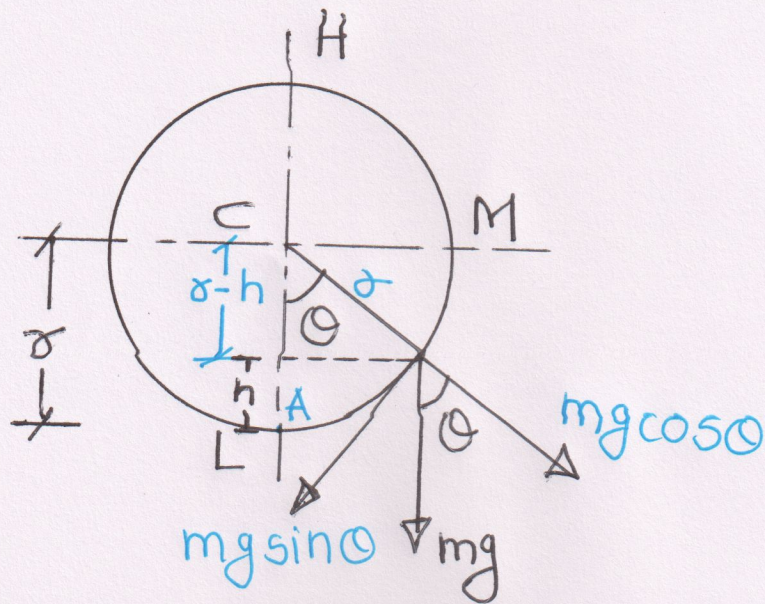 H
C
M
r-h
r
θ
r
h
A
L
θ
mgcosθ
mgsinθ
mg